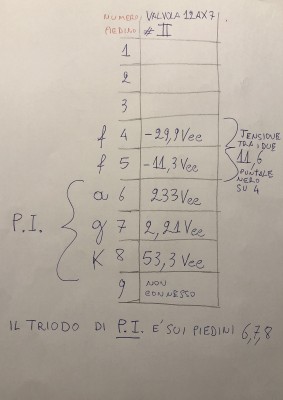 NUMERO VALVOLA 12AX7
PIEDINO # II
1
2
3
f 4 -29,9 Vcc
f 5 -11,3 Vcc
TENSIONE
TRA I DUE
11,6
PUNTALE
NERO
SU 4
a 6 233 Vcc
g 7 2,21 Vcc
K 8 53,3 Vcc
P.I.
9 NON
CONNESSO
IL TRIODO DI P.I. E' SUI PIEDINI 6,7,8